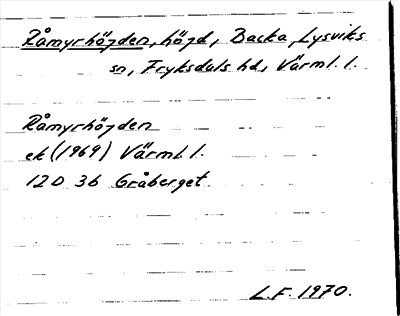 Råmyrhöjden, höjd, Backa, Lysviks
sn, Fryksdals hd, Värml. l.
Råmyrhöjden
ek (1969) Värml. l.
12 D 3b Gråberget
L.F. 1970.